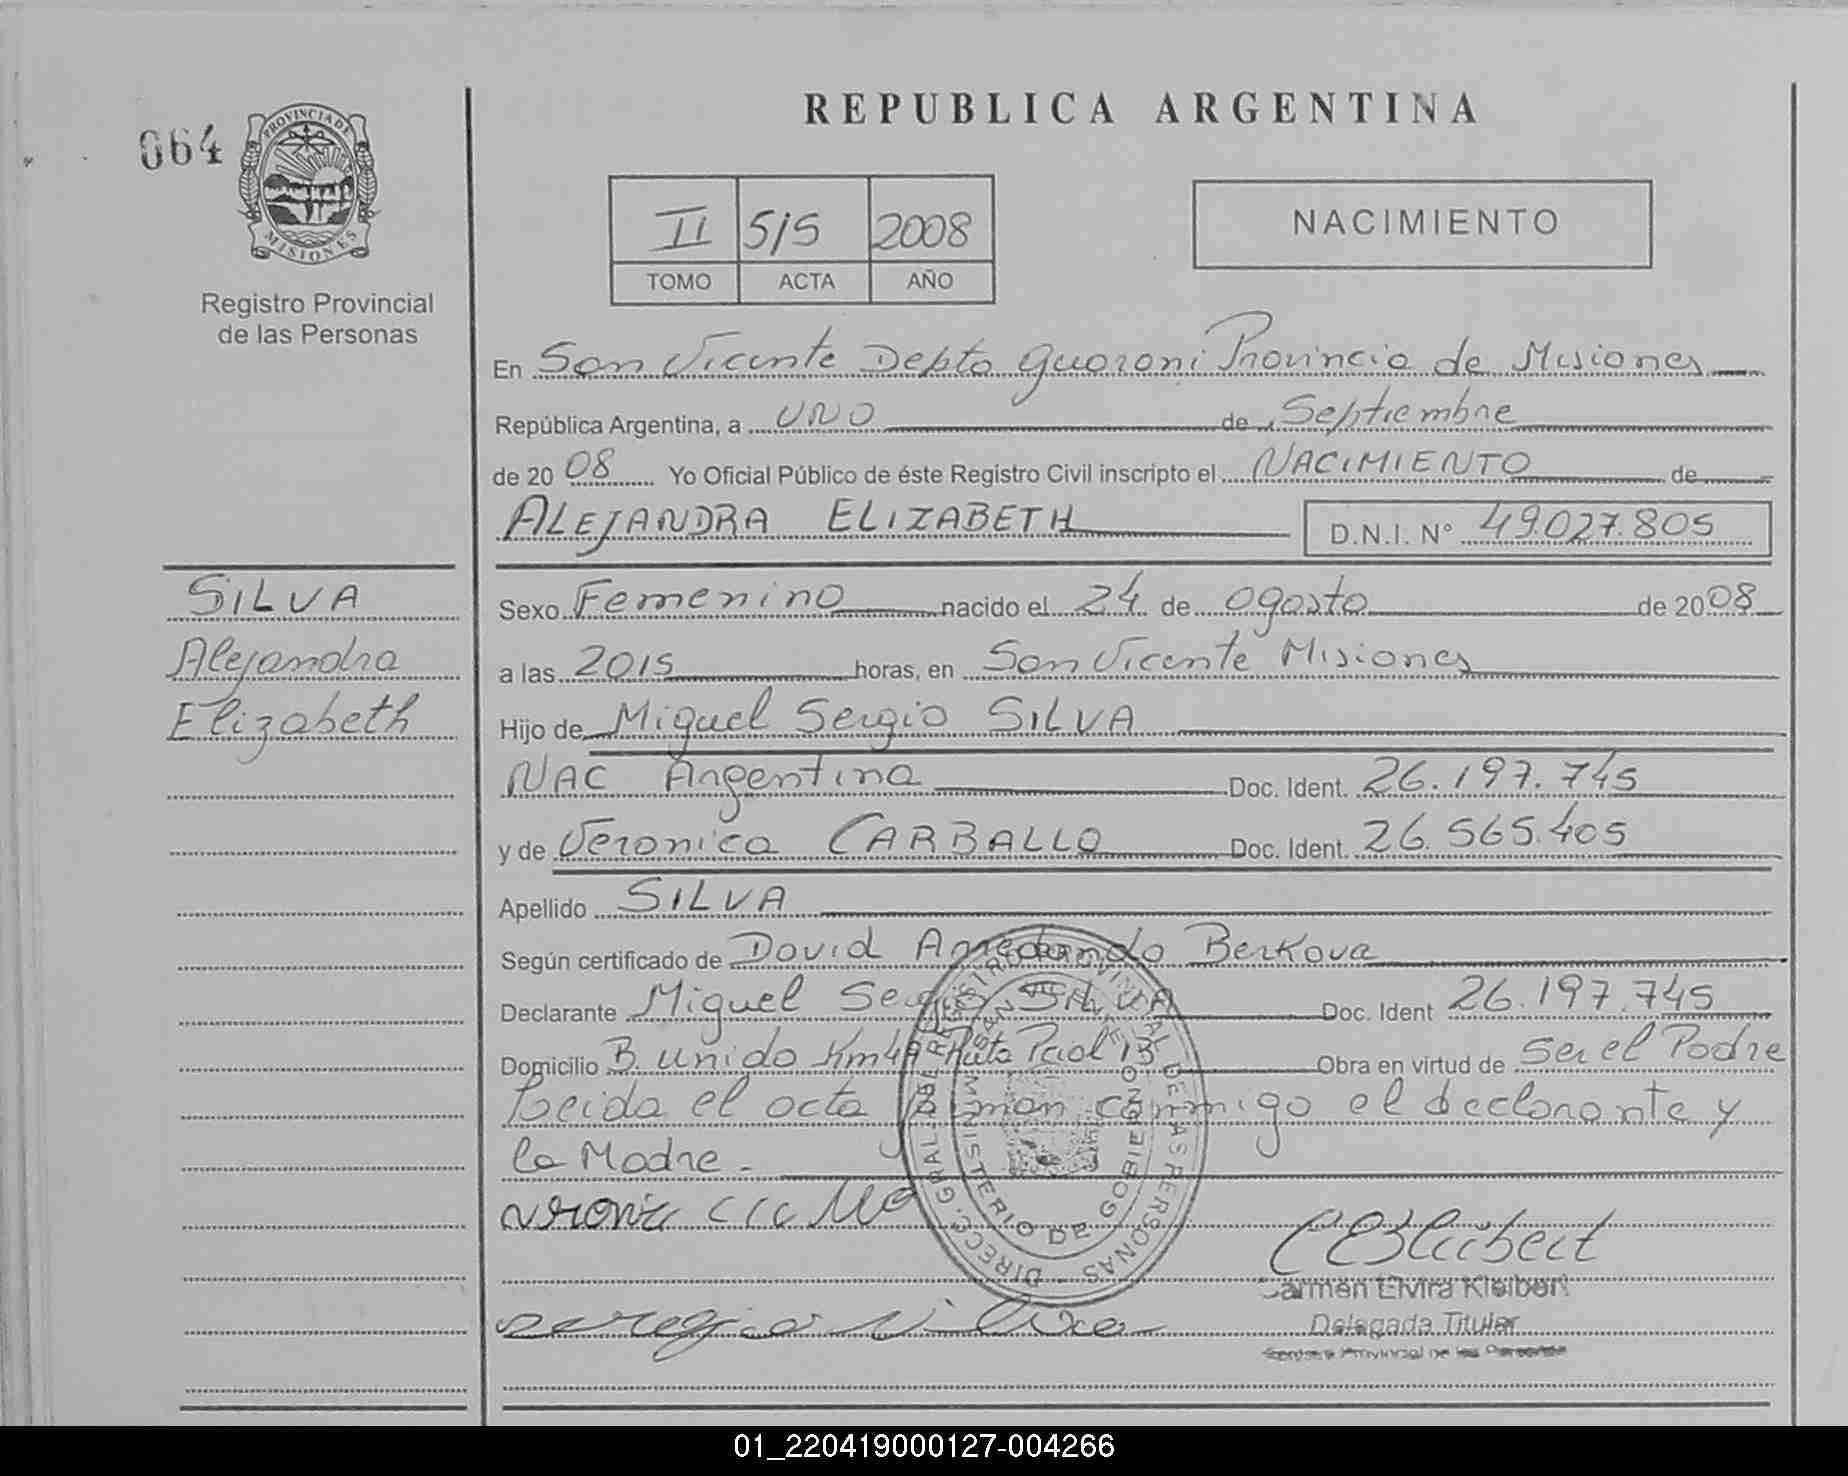 064
PROVINCIA DE
MISIONES
Registro Provincial
de las Personas
REPUBLICA ARGENTINA
II 515 2008
TOMO ACTA AÑO
NACIMIENTO
En San Vicente Depto Guarani Provincia de Misiones
República Argentina, a UNO de Septiembre
de 20 08 Yo Oficial Público de éste Registro Civil inscripto el NACIMIENTO de
ALEJANDRA ELIZABETH D.N.I. N° 49.027.805
SILVA
Alejandra
Elizabeth
Sexo Femenino nacido el 24 de agosto de 2008
a las 2015 horas, en San Vicente Misiones
Hijo de Miguel Sergio SILVA
NAC Argentina Doc. Ident. 26.197.745
y de Veronica CARBALLO Doc. Ident. 26.565.405
Apellido SILVA
Según certificado de David Berkova
Declarante Miguel Sergio SILVA Doc. Ident 26.197.745
Domicilio B. unido Km Ruta Pcial 13 Obra en virtud de ser el Padre
Leida el acta firman conmigo el declarante y
la Madre.-
DIRECC. GRAL. DEL REGISTRO PROVINCIAL DE LAS PERSONAS
SAN VICENTE
MINISTERIO DE GOBIERNO
Carmen Elvira Kleibert
Delegada Titular
Registro Provincial de las Personas
01_220419000127-004266